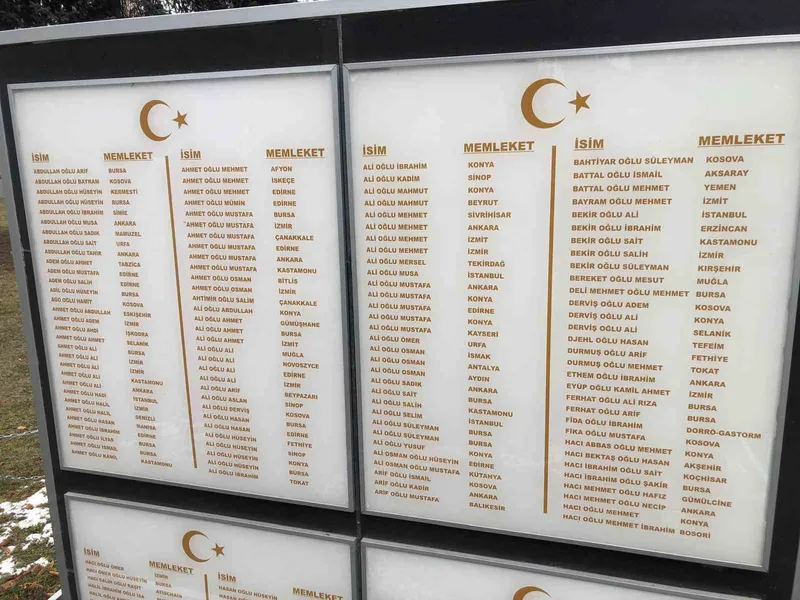 İSİM MEMLEKET
ABDULLAH OĞLU ARİF BURSA
ABDULLAH OĞLU BAYRAM KOSOVA
ABDULLAH OĞLU HÜSEYİN KERMESTI
ABDULLAH OĞLU HÜSEYİN BURSA
ABDULLAH OĞLU İBRAHİM
ABDULLAH OĞLU MUSA ANKARA
ABDULLAH OĞLU SADIK MAMUZEL
ABDULLAH OĞLU SAİT URFA
ABDULLAH OĞLU TAHİR ANKARA
ADEM OĞLU AHMET TABZICA
ADEM OĞLU MUSTAFA EDİRNE
ADEM OĞLU SALİH EDİRNE
ADİL OĞLU HÜSEYİN BURSA
AGO OĞLU HAMİT KOSOVA
AHMET OĞLU ABDULLAH ESKİŞEHİR
AHMET OĞLU ADEM İZMİR
AHMET OĞLU AHDI İŞKODRA
AHMET OĞLU AHMET SELANİK
AHMET OĞLU ALİ BURSA
AHMET OĞLU ALİ İZMİR
AHMET OĞLU ALİ İZMİR
AHMET OĞLU ALİ KASTAMONU
AHMET OĞLU ALİ ANKARA
AHMET OĞLU HADI İSTANBUL
AHMET OĞLU HALİL İZMİR
AHMET OĞLU HALİL DENİZLİ
AHMET OĞLU HASAN MANİSA
AHMET OĞLU İBRAHİM EDİRNE
AHMET OĞLU İLYAS BURSA
AHMET OĞLU İSMAİL BURSA
AHMET OĞLU KAMİL KASTAMONU
İSİM MEMLEKET
AHMET OĞLU MEHMET AFYON
AHMET OĞLU MEHMET İSKEÇE
AHMET OĞLU MEHMET EDİRNE
AHMET OĞLU MÜMİN EDİRNE
AHMET OĞLU MUSTAFA BURSA
AHMET OĞLU MUSTAFA İZMİR
AHMET OĞLU MUSTAFA ÇANAKKALE
AHMET OĞLU MUSTAFA EDİRNE
AHMET OĞLU MUSTAFA ANKARA
AHMET OĞLU MUSTAFA KASTAMONU
AHMET OĞLU OSMAN BİTLİS
AHMET OĞLU OSMAN İZMİR
AHTİMİR OĞLU SALIM ÇANAKKALE
ALİ OĞLU ABDULLAH KONYA
ALİ OĞLU AHMET GÜMÜŞHANE
ALİ OĞLU AHMET BURSA
ALİ OĞLU ALİ İZMİT
ALİ OĞLU ALİ MUĞLA
ALİ OĞLU ALİ NOVOSZYCE
ALİ OĞLU ALİ EDİRNE
ALİ OĞLU ALİ İZMİR
ALİ OĞLU ARİF BEYPAZARI
ALİ OĞLU ASLAN SİNOP
ALİ OĞLU DERVİŞ KOSOVA
ALİ OĞLU HASAN BURSA
ALİ OĞLU HASAN EDİRNE
ALİ OĞLU HÜSEYİN FETHİYE
ALİ OĞLU HÜSEYİN SİNOP
ALİ OĞLU HÜSEYİN KONYA
ALİ OĞLU HÜSEYİN BURSA
ALİ OĞLU HÜSEYİN TOKAT
İSİM MEMLEKET
ALİ OĞLU İBRAHİM KONYA
ALİ OĞLU KADİM SİNOP
ALİ OĞLU MAHMUT KONYA
ALİ OĞLU MAHMUT BEYRUT
ALİ OĞLU MEHMET SİVRİHİSAR
ALİ OĞLU MEHMET ANKARA
ALİ OĞLU MEHMET İZMİT
ALİ OĞLU MEHMET İZMİR
ALİ OĞLU MERSEL TEKİRDAĞ
ALİ OĞLU MUSA İSTANBUL
ALİ OĞLU MUSTAFA ANKARA
ALİ OĞLU MUSTAFA KONYA
ALİ OĞLU MUSTAFA EDİRNE
ALİ OĞLU MUSTAFA KONYA
ALİ OĞLU MUSTAFA KAYSERİ
ALİ OĞLU ÖMER URFA
ALİ OĞLU OSMAN ISMAK
ALİ OĞLU OSMAN ANTALYA
ALİ OĞLU OSMAN AYDIN
ALİ OĞLU SADIK ANKARA
ALİ OĞLU SAİT BURSA
ALİ OĞLU SALİH KASTAMONU
ALİ OĞLU SELİM İSTANBUL
ALİ OĞLU SÜLEYMAN BURSA
ALİ OĞLU SÜLEYMAN BURSA
ALİ OĞLU YUSUF KONYA
ALİ OSMAN OĞLU HÜSEYİN EDİRNE
ALİ OSMAN OĞLU MUSTAFA KÜTAHYA
ARİF OĞLU İSMAİL KOSOVA
ARİF OĞLU KADİR ANKARA
ARİF OĞLU MUSTAFA BALIKESİR
İSİM MEMLEKET
BAHTİYAR OĞLU SÜLEYMAN KOSOVA
BATTAL OĞLU İSMAİL AKSARAY
BATTAL OĞLU MEHMET YEMEN
BAYRAM OĞLU MEHMET İZMİT
BEKİR OĞLU ALİ İSTANBUL
BEKİR OĞLU İBRAHİM ERZİNCAN
BEKİR OĞLU SAİT KASTAMONU
BEKİR OĞLU SALİH İZMİR
BEKİR OĞLU SÜLEYMAN KIRŞEHİR
BEREKET OĞLU MESUT MUĞLA
DELİ MEHMET OĞLU MEHMET BURSA
DERVİŞ OĞLU ADEM KOSOVA
DERVİŞ OĞLU ALİ KONYA
DERVİŞ OĞLU ALİ SELANİK
DJEHL OĞLU HASAN TEFEİM
DURMUŞ OĞLU ARİF FETHİYE
DURMUŞ OĞLU MEHMET TOKAT
ETHEM OĞLU İBRAHİM ANKARA
EYÜP OĞLU KAMİL AHMET İZMİR
FERHAT OĞLU ALİ RIZA BURSA
FERHAT OĞLU ARİF BURSA
FİDA OĞLU İBRAHİM DORRO-GASTORM
FİKA OĞLU MUSTAFA KOSOVA
HACI ABBAS OĞLU MEHMET KONYA
HACI BEKTAŞ OĞLU HASAN AKŞEHİR
HACI İBRAHİM OĞLU SAİT KOÇHİSAR
HACI İBRAHİM OĞLU ŞAKİR BURSA
HACI MEHMET OĞLU HAFIZ GÜMÜLCİNE
HACI MEHMET OĞLU NECİP ANKARA
HACI OĞLU MEHMET KONYA
HACI OĞLU MEHMET İBRAHİM BOSÖRİ
İSİM MEMLEKET
HACI OĞLU ÖMER İZMİR
HACI ÖMER OĞLU HÜSEYİN BURSA
HACI SALİH OĞLU RAŞİT
HALİL İBRAHİM OĞLU İSA
İSİM MEMLEKET
HASAN OĞLU HÜSEYİN